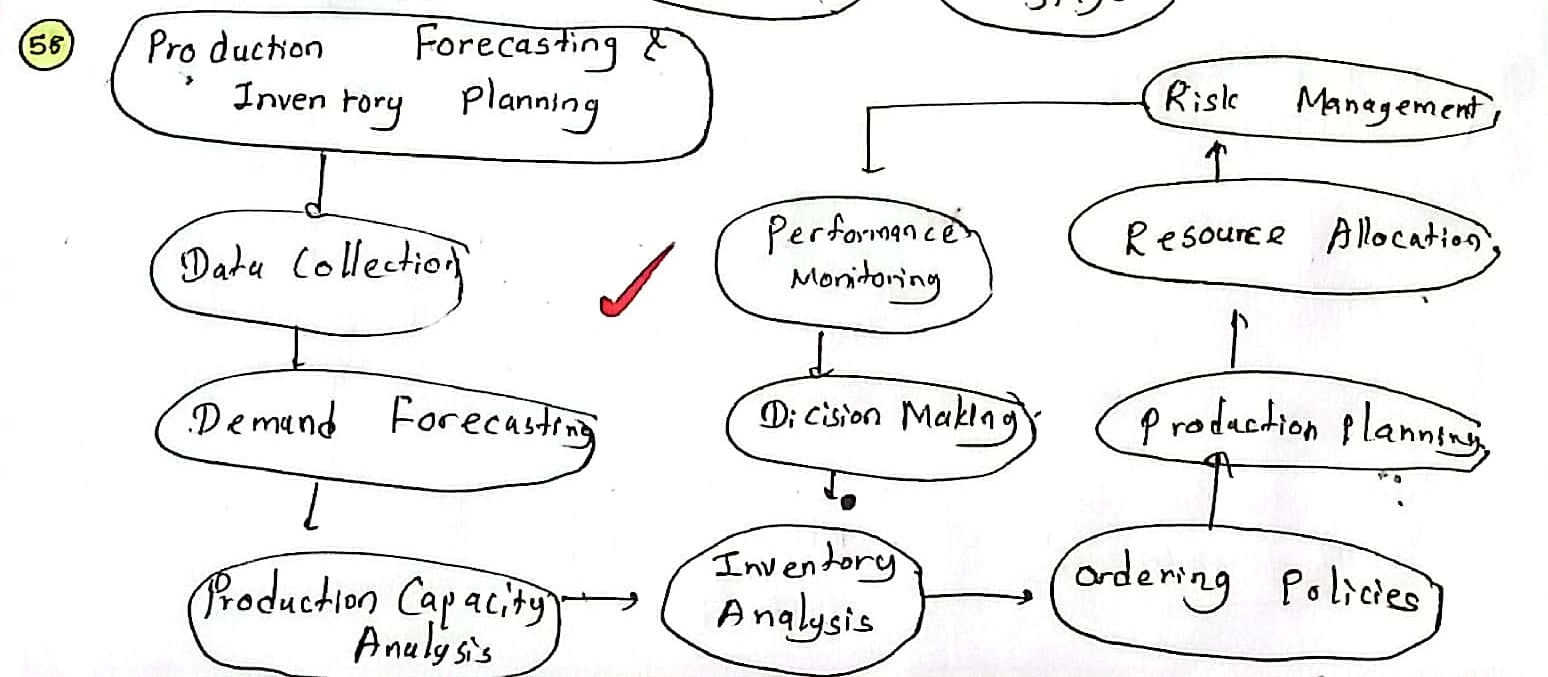 58
Production Forecasting &
Inventory Planning
Data Collection
Demand Forecasting
Production Capacity
Analysis
Inventory
Analysis
Ordering Policies
Production Planning
Resource Allocation
Risk Management
Performance
Monitoring
Dicision Making